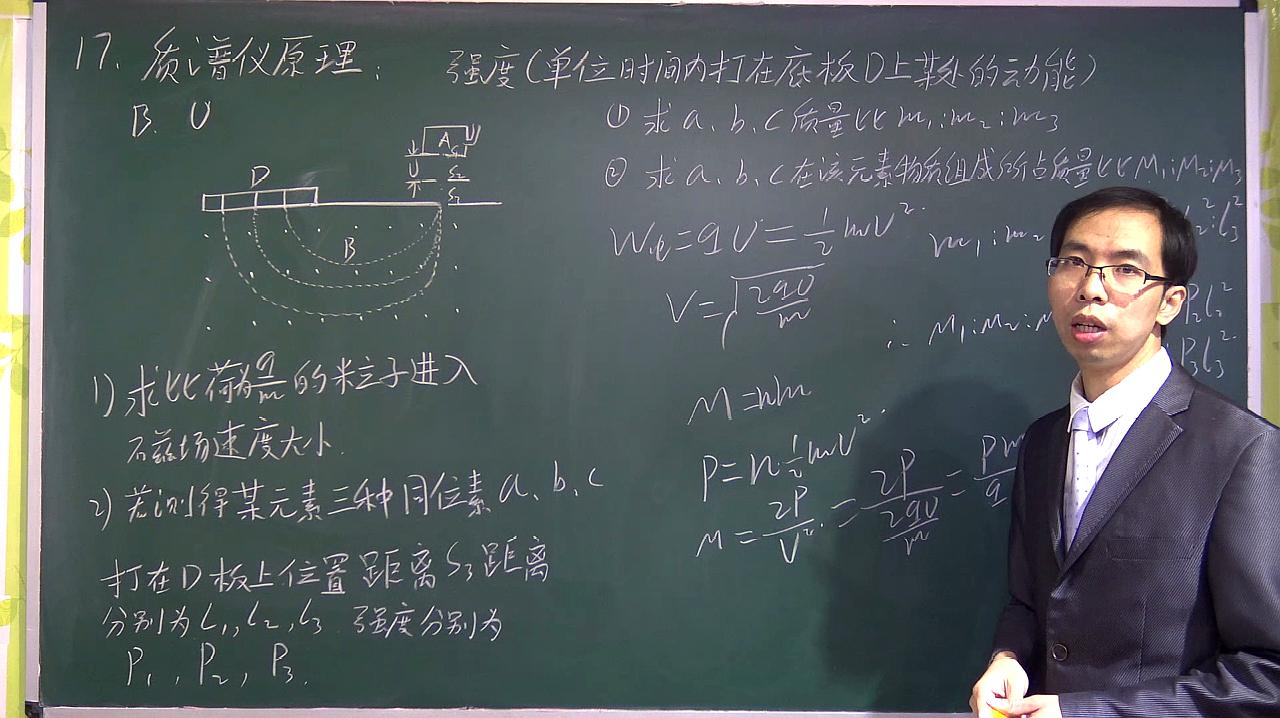 17. 质谱仪原理:
B. U
D
A
U
S2
S3
B
1) 求比荷为q/m的粒子进入
磁场速度大小.
2) 若测得某元素三种同位素a、b、c
打在D板上位置距离S3距离
分别为L1, L2, L3 强度分别为
P1, P2, P3.
强度(单位时间内打在底板D上某处的动能)
① 求a、b、c质量比m1:m2:m3
② 求a、b、c在该元素物质组成所占质量比M1:M2:M3
W电=qU=1/2mV²
V=√(2qU/m)
M=nm
P=n·1/2mV²
M=2P/V²=2P/(2qU/m)=Pm/q
m1:m2 L2²:L3²
∴ M1:M2:M P2L2²
P3L3²